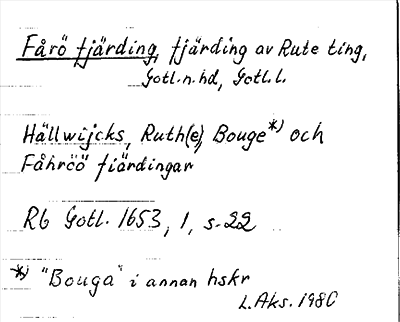 Fårö fjärding, fjärding av Rute ting,
Gotl.n.hd, Gotl.l.
Hällwijcks, Ruth(e), Bouge*) och
Fåhröö fiärdingar
Rb Gotl. 1653, 1, s. 22
*) "Bouga" i annan hskr
L.Aks. 1980